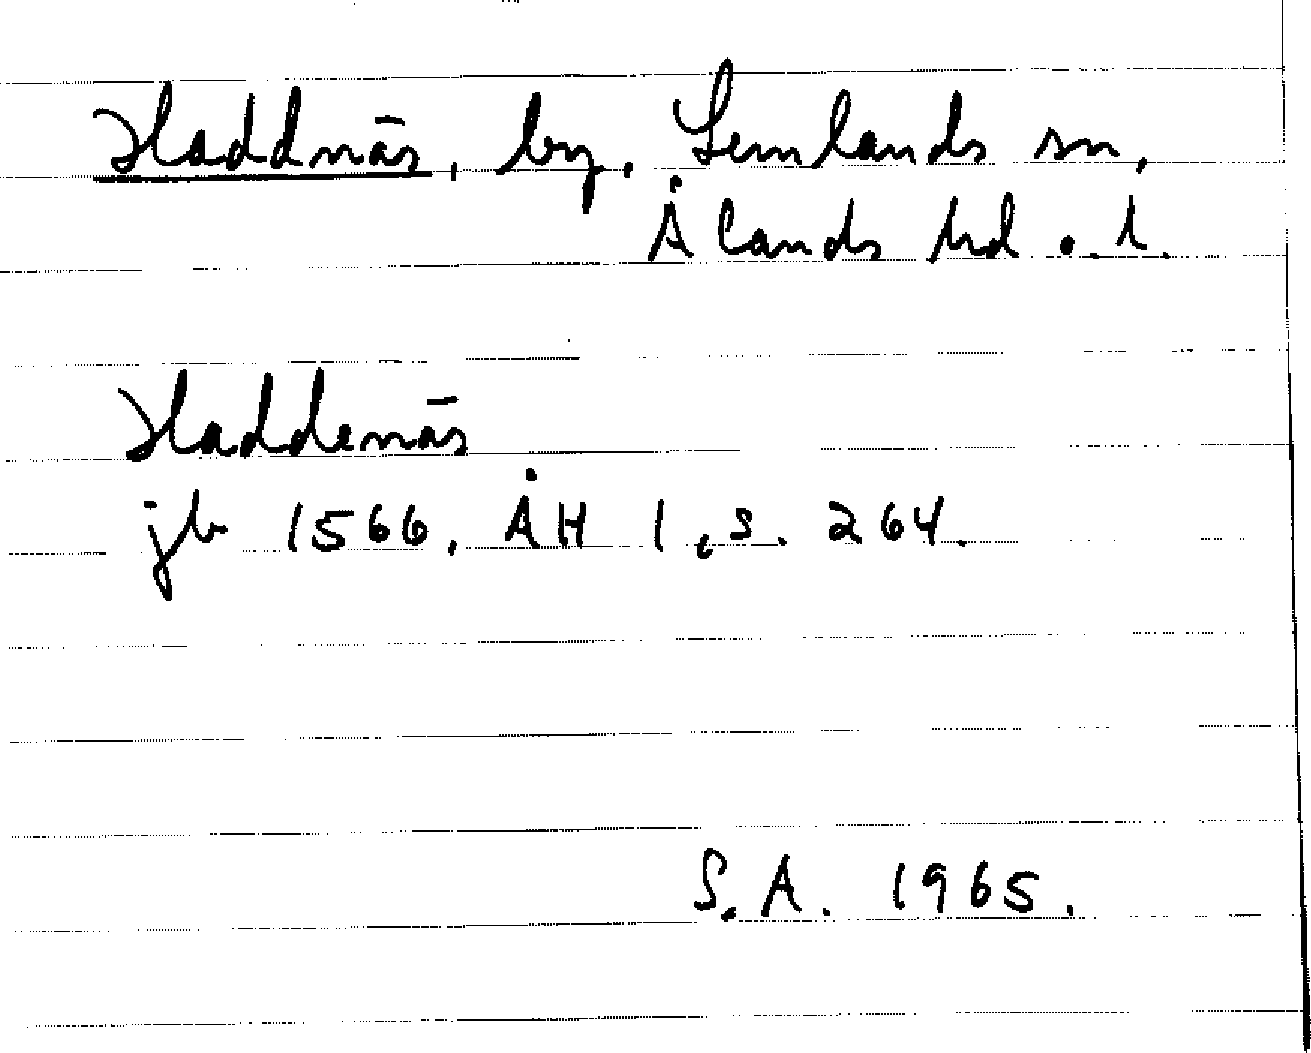 Haddnäs, by, Lemlands sn,
Ålands hd o. l.
Haddenäs
jb 1566, ÅH 1, s. 264.
S.A. 1965.